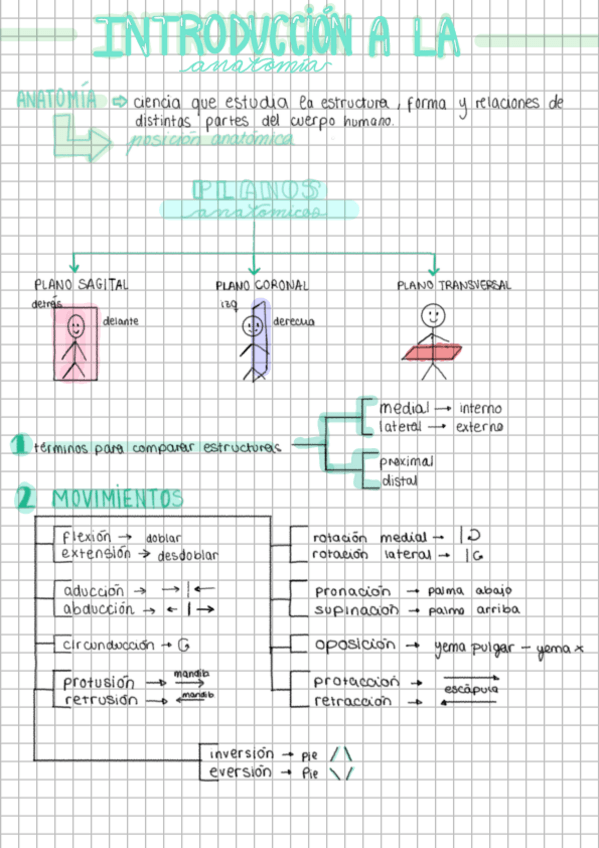 INTRODUCCIÓN A LA
anatomía
ANATOMÍA ⇨ ciencia que estudia la estructura, forma y relaciones de
distintas partes del cuerpo humano.
posición anatómica
PLANOS
anatómicos
PLANO SAGITAL
detrás
delante
PLANO CORONAL
izq
derecua
PLANO TRANSVERSAL
1 términos para comparar estructuras
medial → interno
lateral → externo
proximal
distal
2 MOVIMIENTOS
flexión → doblar
extensión → desdoblar
aducción → →|←
abducción → ←|→
circunducción → G
protusión → mandib
retrusión → mandib
rotación medial →
rotación lateral →
pronación → palma abajo
supinación → palma arriba
oposición → yema pulgar - yema x
protacción →
escápula
retracción →
inversión → pie /\
eversión → Pie \/